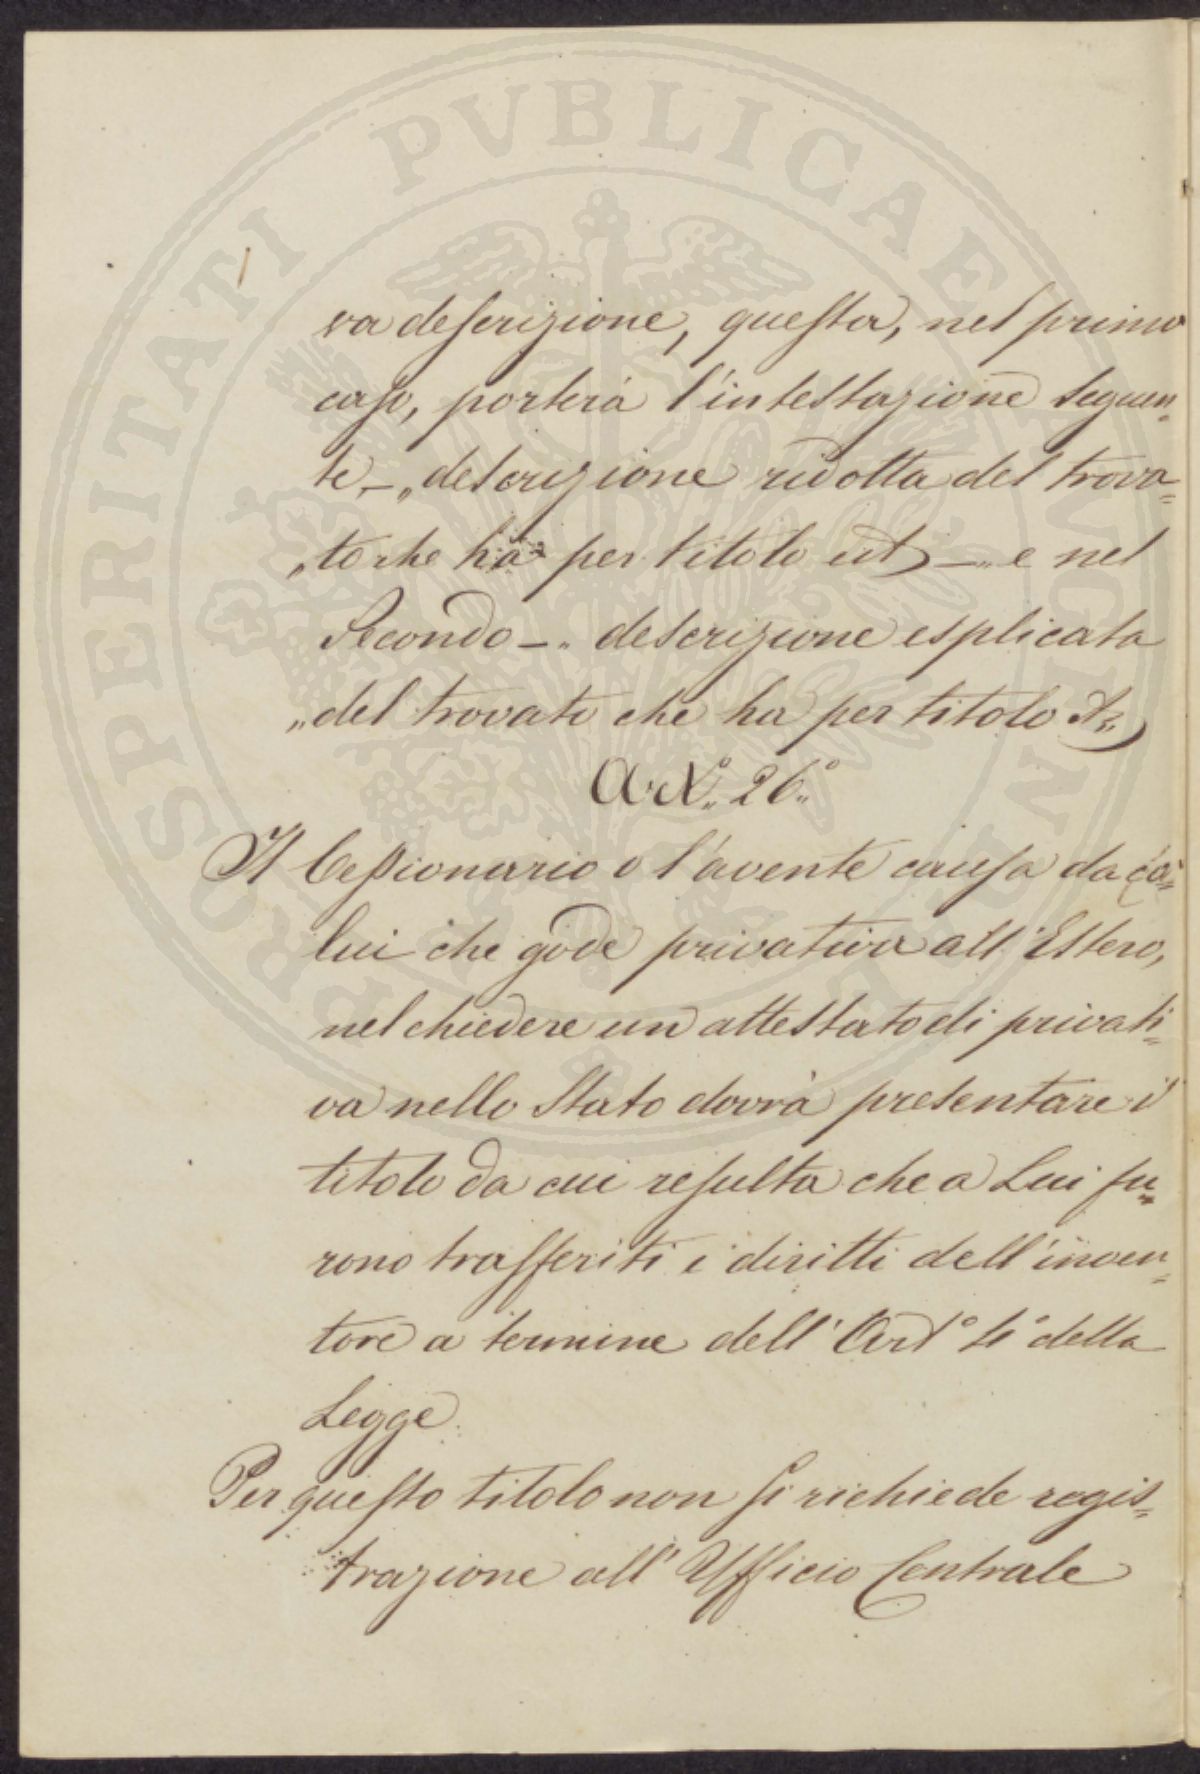 PROSPERITATI PVBLICAE AVGENDAE
va descrizione, questa, nel primo
caso, porterà l'intestazione seguen=
te, – „descrizione ridotta del trova=
„to che ha per titolo ect – „ e nel
Secondo – „ descrizione esplicata
„del trovato che ha per titolo &„
Art.° 26.°
Il Cessionario o l'avente causa da co=
lui che gode privativa all'Estero,
nel chiedere un attestato di privati=
va nello Stato dovrà presentare il
titolo da cui resulta che a Lui fu=
rono trasferiti i diritti dell'inven=
tore a termine dell'Art° 4° della
Legge.
Per questo titolo non si richiede regis=
trazione all'Ufficio Centrale